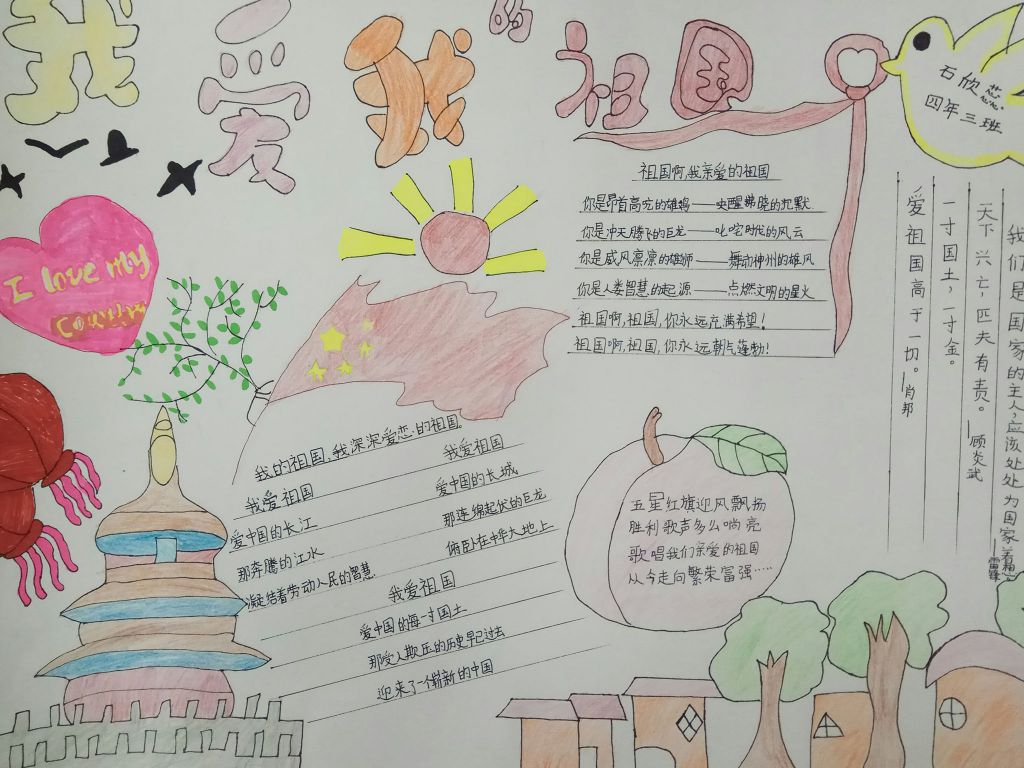 我爱我的祖国
石欣蕊
四年三班
I love my
Country
祖国啊,我亲爱的祖国
你是昂首高吭的雄鸡——唤醒拂晓的沉默
你是冲天腾飞的巨龙——叱咤时代的风云
你是威风凛凛的雄狮——舞动神州的雄风
你是人类智慧的起源——点燃文明的星火
祖国啊,祖国,你永远充满希望!
祖国啊,祖国,你永远朝气蓬勃!
我们是国家的主人,应该处处为国家着想
——雷锋
天下兴亡,匹夫有责。——顾炎武
一寸国土,一寸金。
爱祖国高于一切。——肖邦
我的祖国,我深深爱恋的祖国
我爱祖国
爱中国的长江
那奔腾的江水
凝结着劳动人民的智慧
我爱祖国
爱中国的长城
那连绵起伏的巨龙
俯卧在中华大地上
我爱祖国
爱中国的每一寸国土
那受人欺压的历史早已过去
迎来了一个崭新的中国
五星红旗迎风飘扬
胜利歌声多么响亮
歌唱我们亲爱的祖国
从今走向繁荣富强……